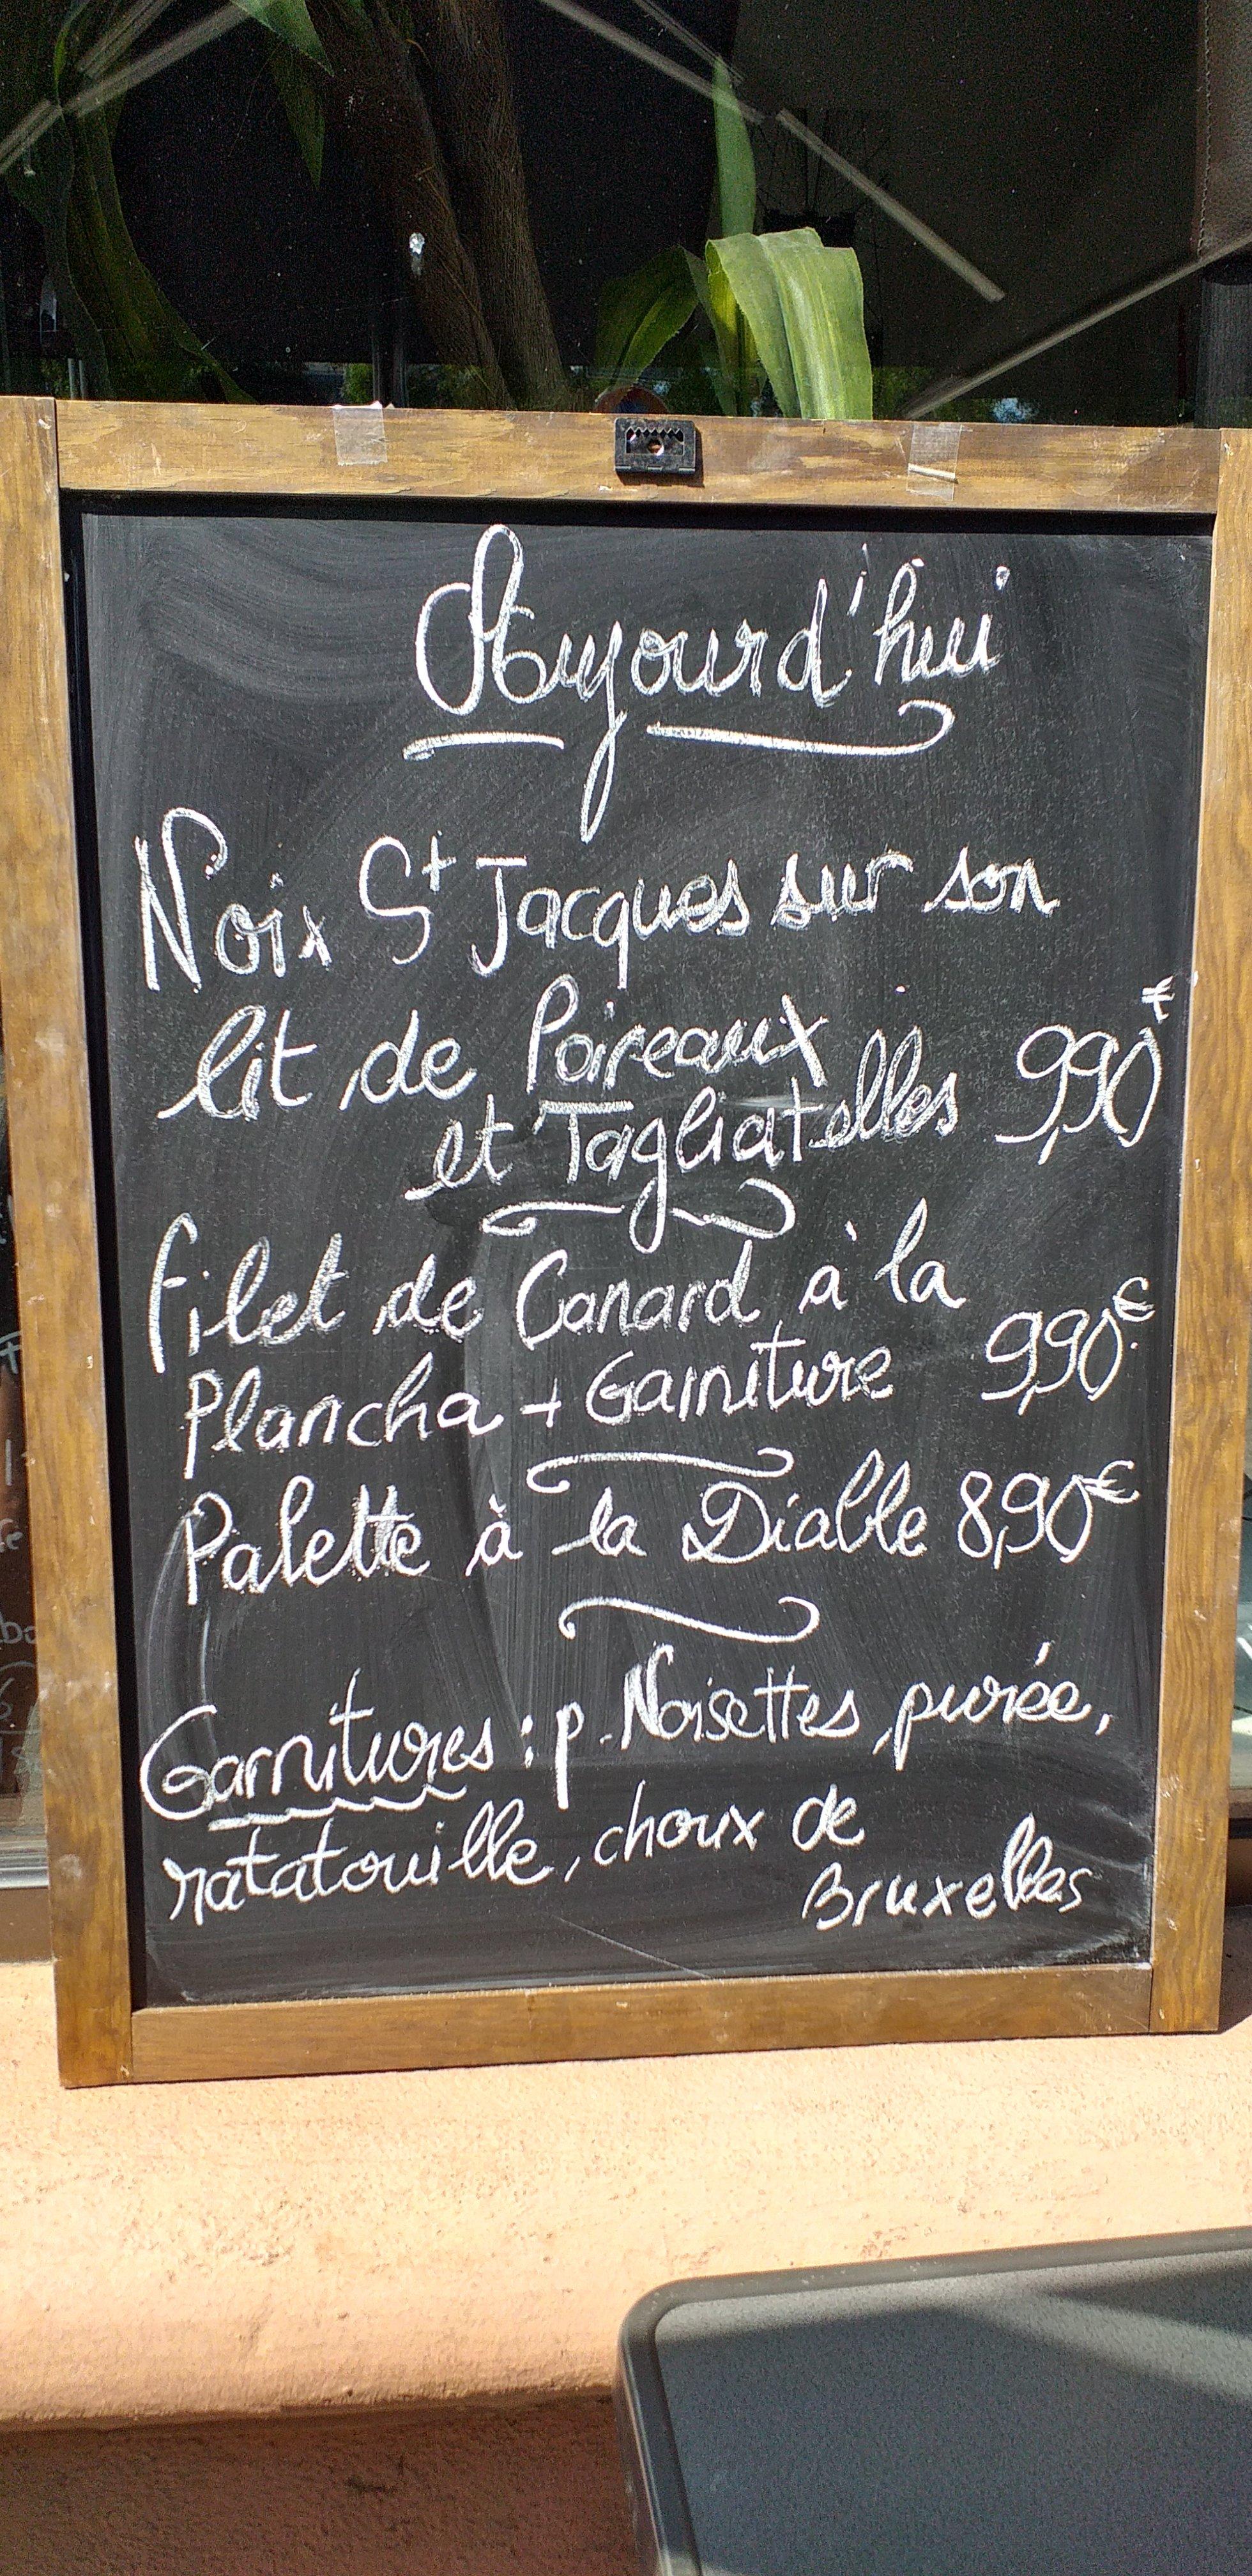 Aujourd'hui
Noix St Jacques sur son
lit de Poireaux
et Tagliatelles 9,90€
Filet de Canard à la
Plancha + Garniture 9,90€
Palette à la Diable 8,90€
Garnitures : p. Noisettes, purée,
ratatouille, choux de
Bruxelles